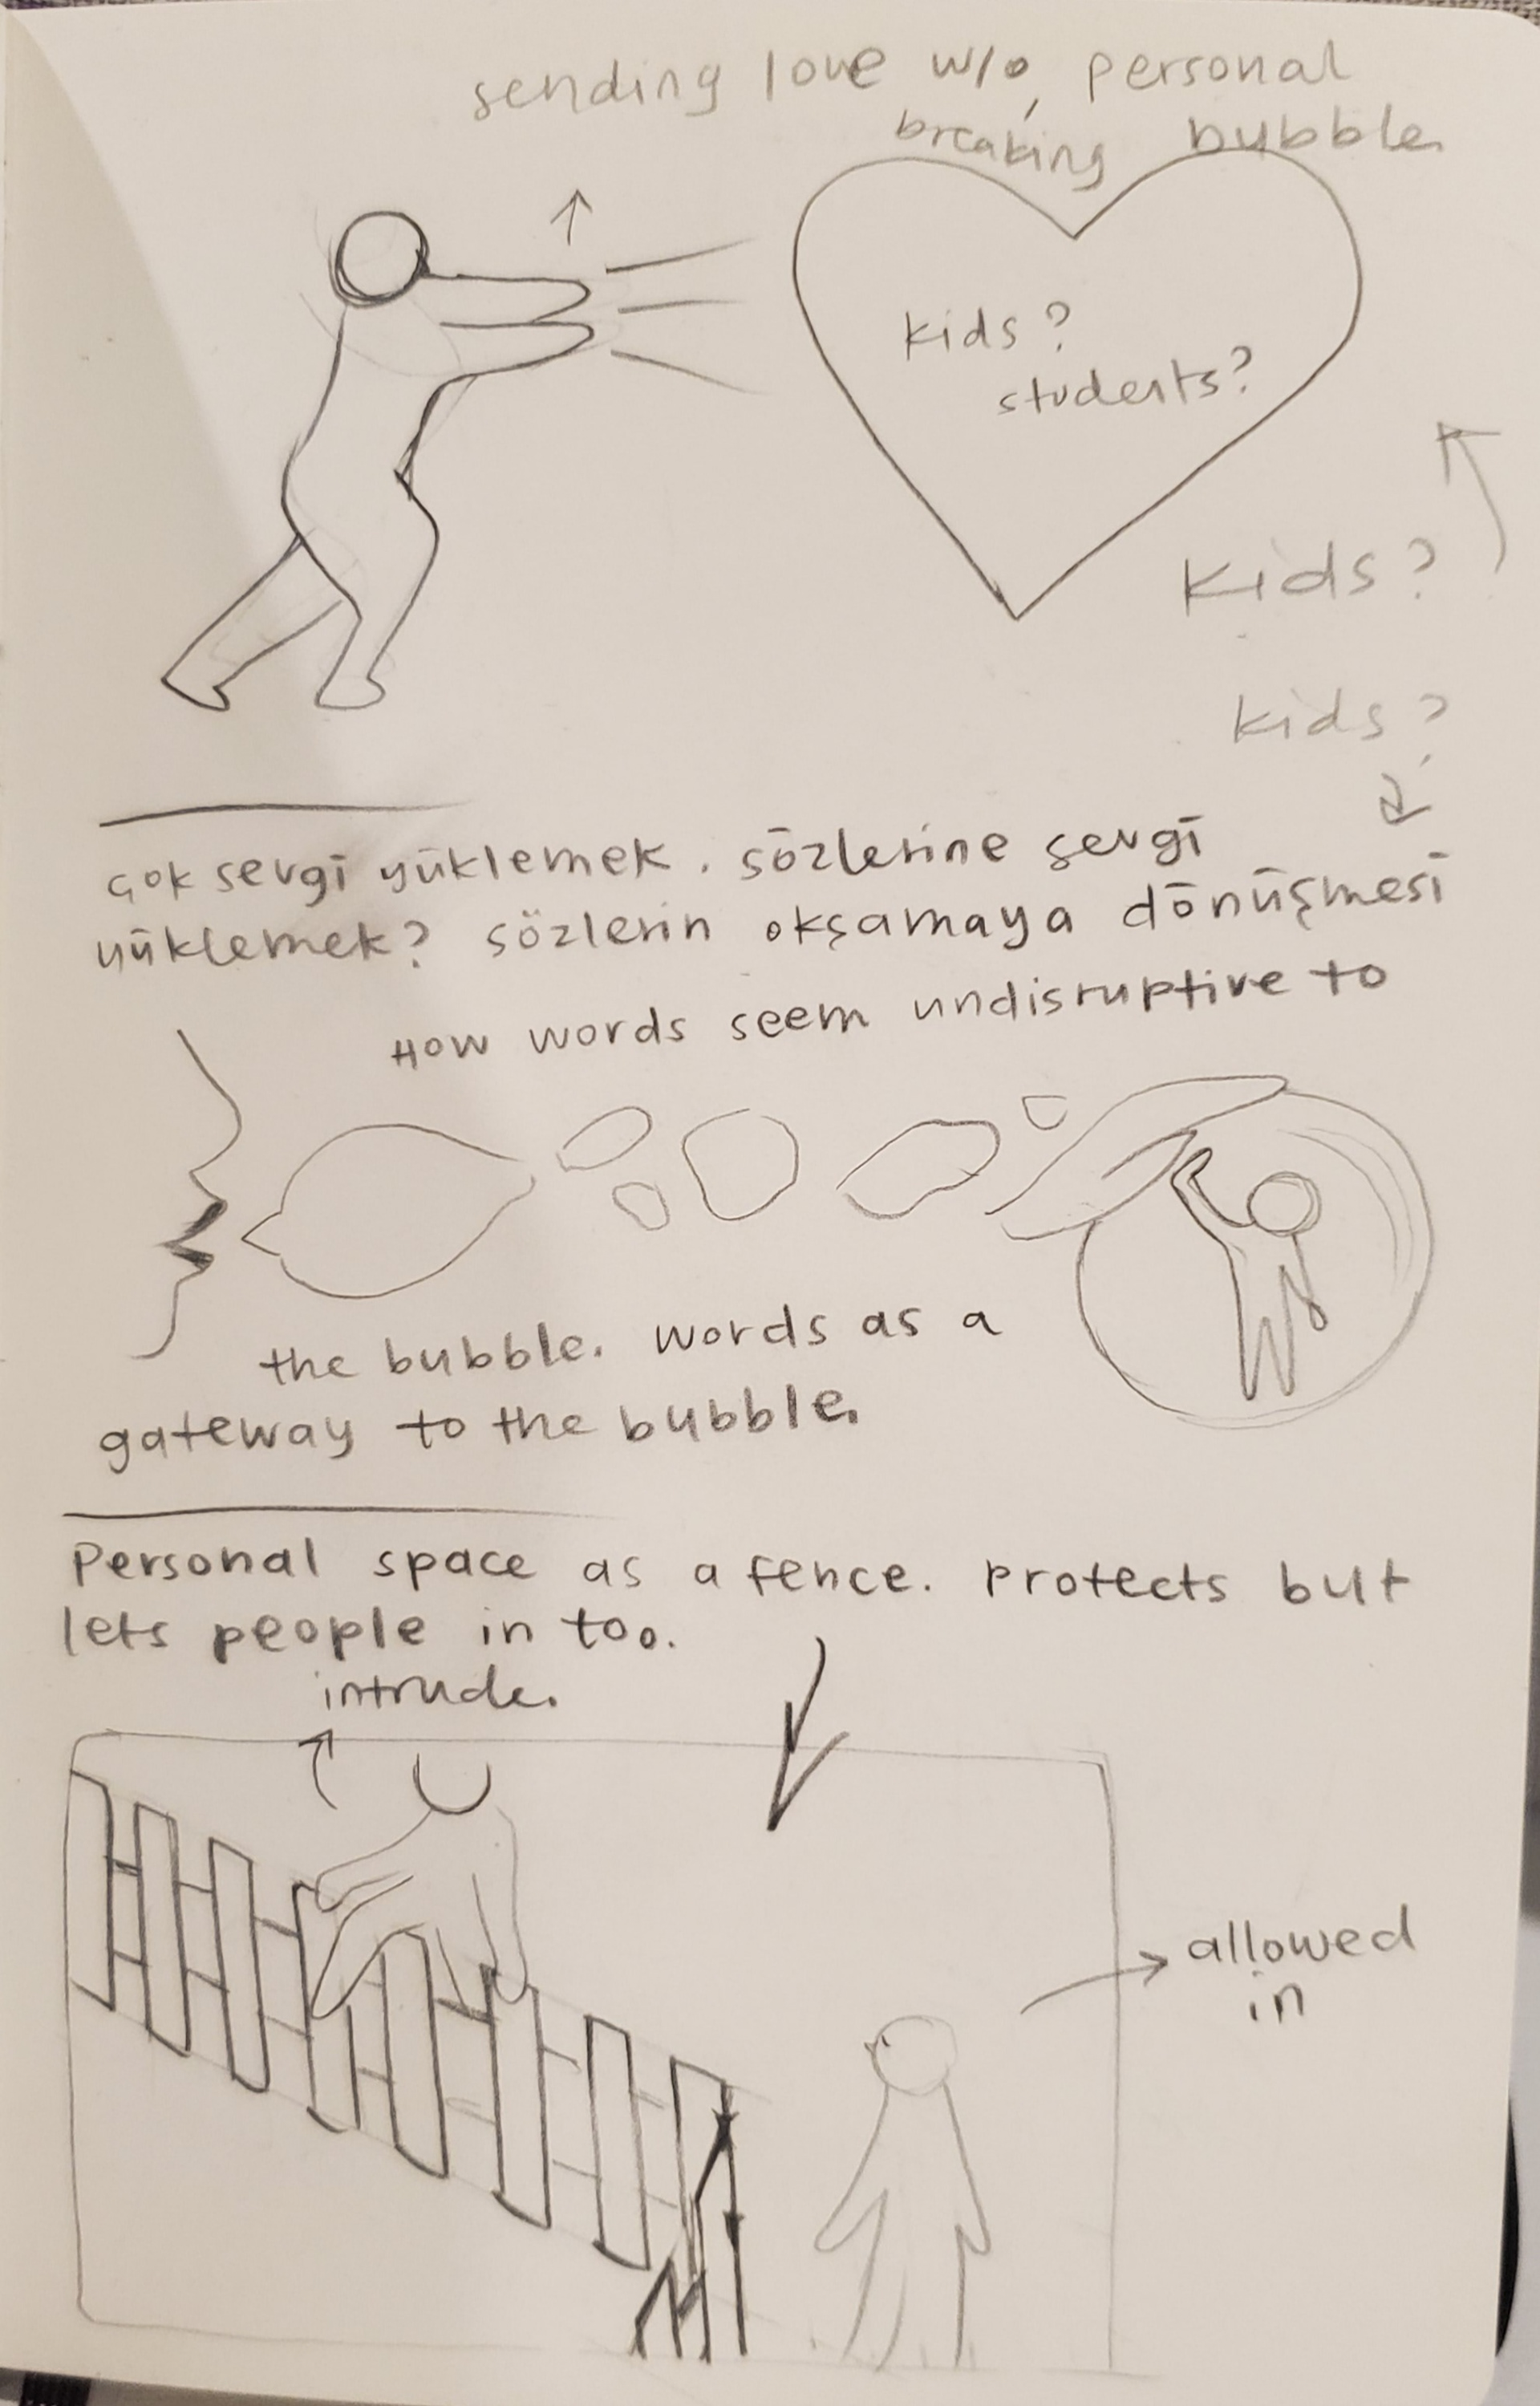 sending love w/o personal
breaking bubble.
kids?
students?
Kids?
kids?
çok sevgi yüklemek. sözlerine sevgi
yüklemek? sözlerin okşamaya dönüşmesi
How words seem undisruptive to
the bubble. words as a
gateway to the bubble.
Personal space as a fence. Protects but
lets people in too.
intrude.
allowed
in